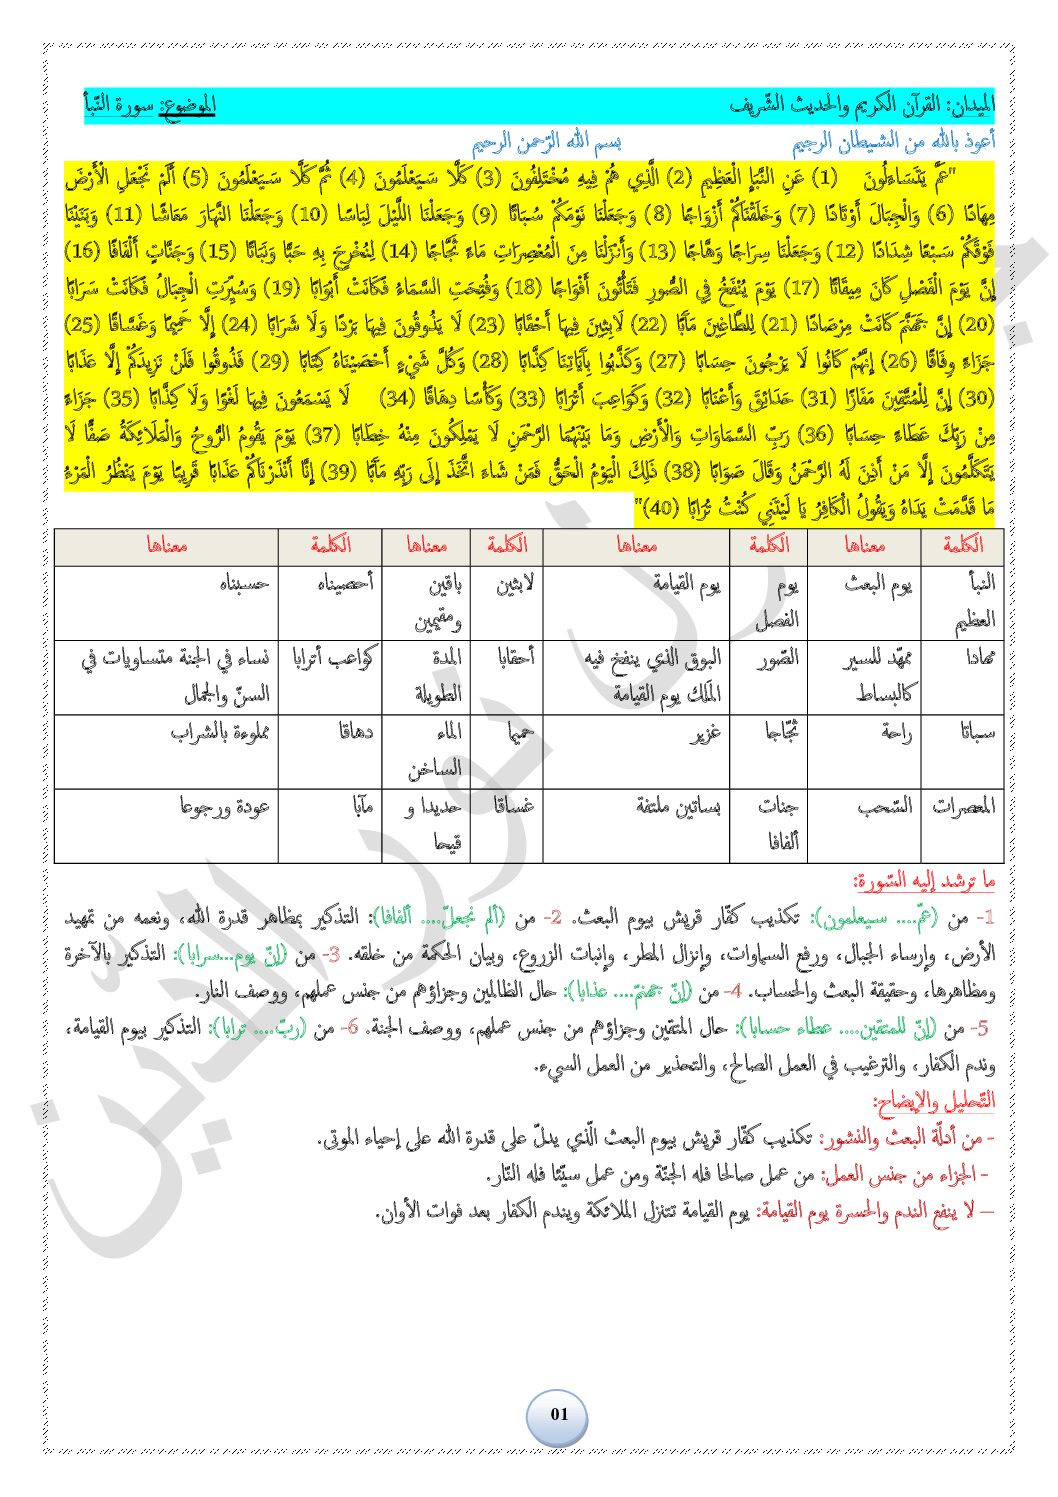 الميدان: القرآن الكريم والحديث الشّريف الموضوع: سورة النّبأ
أعوذ بالله من الشيطان الرجيم بسم الله الرّحمن الرحيم
"عَمَّ يَتَسَاءَلُونَ (1) عَنِ النَّبَإِ الْعَظِيمِ (2) الَّذِي هُمْ فِيهِ مُخْتَلِفُونَ (3) كَلَّا سَيَعْلَمُونَ (4) ثُمَّ كَلَّا سَيَعْلَمُونَ (5) أَلَمْ نَجْعَلِ الْأَرْضَ
مِهَادًا (6) وَالْجِبَالَ أَوْتَادًا (7) وَخَلَقْنَاكُمْ أَزْوَاجًا (8) وَجَعَلْنَا نَوْمَكُمْ سُبَاتًا (9) وَجَعَلْنَا اللَّيْلَ لِبَاسًا (10) وَجَعَلْنَا النَّهَارَ مَعَاشًا (11) وَبَنَيْنَا
فَوْقَكُمْ سَبْعًا شِدَادًا (12) وَجَعَلْنَا سِرَاجًا وَهَّاجًا (13) وَأَنْزَلْنَا مِنَ الْمُعْصِرَاتِ مَاءً ثَجَّاجًا (14) لِنُخْرِجَ بِهِ حَبًّا وَنَبَاتًا (15) وَجَنَّاتٍ أَلْفَافًا (16)
إِنَّ يَوْمَ الْفَصْلِ كَانَ مِيقَاتًا (17) يَوْمَ يُنْفَخُ فِي الصُّورِ فَتَأْتُونَ أَفْوَاجًا (18) وَفُتِحَتِ السَّمَاءُ فَكَانَتْ أَبْوَابًا (19) وَسُيِّرَتِ الْجِبَالُ فَكَانَتْ سَرَابًا
(20) إِنَّ جَهَنَّمَ كَانَتْ مِرْصَادًا (21) لِلطَّاغِينَ مَآبًا (22) لَابِثِينَ فِيهَا أَحْقَابًا (23) لَا يَذُوقُونَ فِيهَا بَرْدًا وَلَا شَرَابًا (24) إِلَّا حَمِيمًا وَغَسَّاقًا (25)
جَزَاءً وِفَاقًا (26) إِنَّهُمْ كَانُوا لَا يَرْجُونَ حِسَابًا (27) وَكَذَّبُوا بِآيَاتِنَا كِذَّابًا (28) وَكُلَّ شَيْءٍ أَحْصَيْنَاهُ كِتَابًا (29) فَذُوقُوا فَلَنْ نَزِيدَكُمْ إِلَّا عَذَابًا
(30) إِنَّ لِلْمُتَّقِينَ مَفَازًا (31) حَدَائِقَ وَأَعْنَابًا (32) وَكَوَاعِبَ أَتْرَابًا (33) وَكَأْسًا دِهَاقًا (34) لَا يَسْمَعُونَ فِيهَا لَغْوًا وَلَا كِذَّابًا (35) جَزَاءً
مِنْ رَبِّكَ عَطَاءً حِسَابًا (36) رَبِّ السَّمَاوَاتِ وَالْأَرْضِ وَمَا بَيْنَهُمَا الرَّحْمَنِ لَا يَمْلِكُونَ مِنْهُ خِطَابًا (37) يَوْمَ يَقُومُ الرُّوحُ وَالْمَلَائِكَةُ صَفًّا لَا
يَتَكَلَّمُونَ إِلَّا مَنْ أَذِنَ لَهُ الرَّحْمَنُ وَقَالَ صَوَابًا (38) ذَلِكَ الْيَوْمُ الْحَقُّ فَمَنْ شَاءَ اتَّخَذَ إِلَى رَبِّهِ مَآبًا (39) إِنَّا أَنْذَرْنَاكُمْ عَذَابًا قَرِيبًا يَوْمَ يَنْظُرُ الْمَرْءُ
مَا قَدَّمَتْ يَدَاهُ وَيَقُولُ الْكَافِرُ يَا لَيْتَنِي كُنْتُ تُرَابًا (40)"
الكلمة معناها الكلمة معناها الكلمة معناها الكلمة معناها
النبأ يوم البعث يوم يوم القيامة لابثين باقين أحصيناه حسبناه
العظيم الفصل ومقيمين
مهادا ممهّد للسير الصّور البوق الذي ينفخ فيه أحقابا المدة كواعب أترابا نساء في الجنة متساويات في
كالبساط المَلَك يوم القيامة الطويلة السنّ والجمال
سباتا راحة ثجّاجا غزير حميما الماء دهاقا مملوءة بالشراب
الساخن
المعصرات السّحب جنات بساتين ملتفة غساقا حديدا و مآبا عودة ورجوعا
ألفافا قيحا
ما ترشد إليه السّورة:
1- من (عمّ.... سيعلمون): تكذيب كفّار قريش بيوم البعث. 2- من (ألم نجعلْ.... ألفافا): التذكير بمظاهر قدرة الله، ونعمه من تمهيد
الأرض، وإرساء الجبال، ورفع السماوات، وإنزال المطر، وإنبات الزروع، وبيان الحكمة من خلقه. 3- من (إنّ يوم...سرابا): التذكير بالآخرة
ومظاهرها، وحقيقة البعث والحساب. 4- من (إنّ جهنمّ.... عذابا): حال الظالمين وجزاؤهم من جنس عملهم، ووصف النار.
5- من (إنّ للمتقين.... عطاء حسابا): حال المتقين وجزاؤهم من جنس عملهم، ووصف الجنة. 6- من (ربّ.... ترابا): التذكير بيوم القيامة،
وندم الكفار، والترغيب في العمل الصالح، والتحذير من العمل السيء.
التّحليل والإيضاح:
- من أدلّة البعث والنشور: تكذيب كفّار قريش بيوم البعث الّذي يدلّ على قدرة الله على إحياء الموتى.
- الجزاء من جنس العمل: من عمل صالحا فله الجنّة ومن عمل سيّئا فله النّار.
– لا ينفع الندم والحسرة يوم القيامة: يوم القيامة تتنزل الملائكة ويندم الكفار بعد فوات الأوان.
01